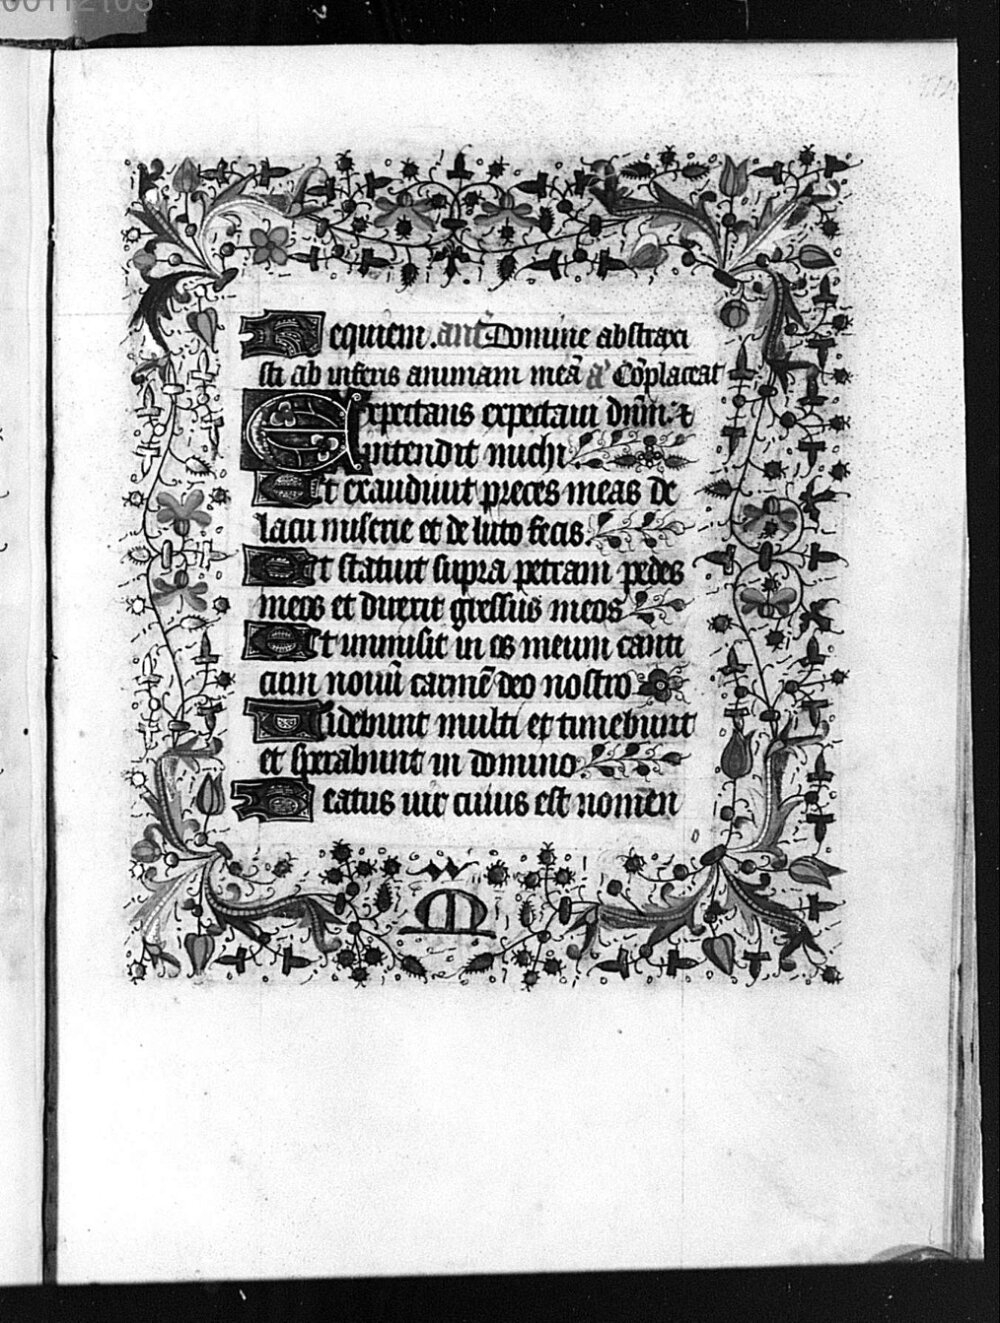 00112103
Requiem. ant̄ Domine abstraxi
sti ab inferis animam meā a᷑ Cōplaceat
Expectans expectaui dn̄m: ⁊
intendit michi.
Et exaudiuit preces meas de
lacu miserie et de luto fecis.
Et statuit supra petram pedes
meos et direxit gressus meos
Et immisit in os meum canti
cum nouū carmē deo nostro
Uidebunt multi et timebunt
et sperabunt in domino
Beatus uir cuius est nomen
M